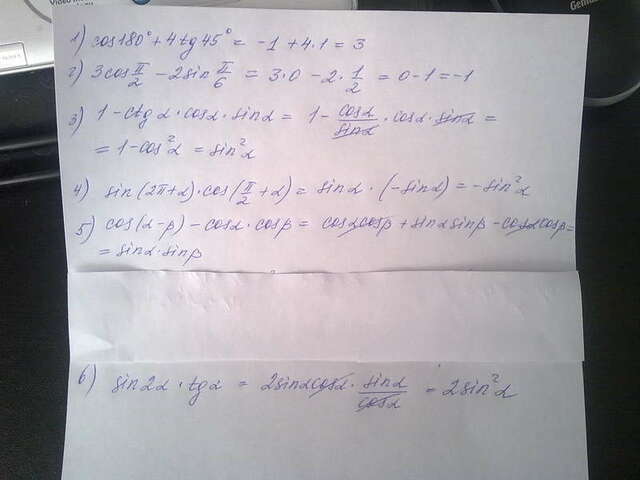 1) cos180°+4tg45° = -1+4·1 = 3
2) 3cos π/2 - 2sin π/6 = 3·0 - 2·1/2 = 0-1 = -1
3) 1-ctgα·cosα·sinα = 1- cosα/sinα ·cosα·sinα =
= 1-cos²α = sin²α
4) sin(2π+α)·cos(π/2+α) = sinα·(-sinα) = -sin²α
5) cos(α-β) - cosα·cosβ = cosαcosβ + sinαsinβ - cosαcosβ =
= sinα·sinβ
6) sin2α·tgα = 2sinαcosα· sinα/cosα = 2sin²α